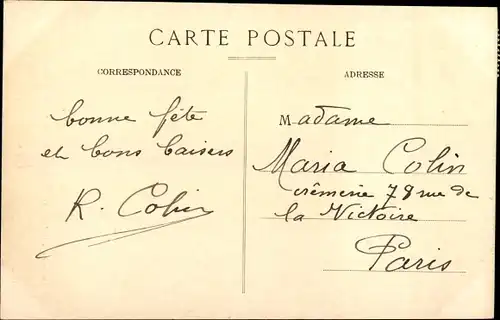 CARTE POSTALE
CORRESPONDANCE
ADRESSE
bonne fête
et bons baisers
R. Colin
Madame
Maria Colin
crêmerie 78 rue de
la Victoire
Paris